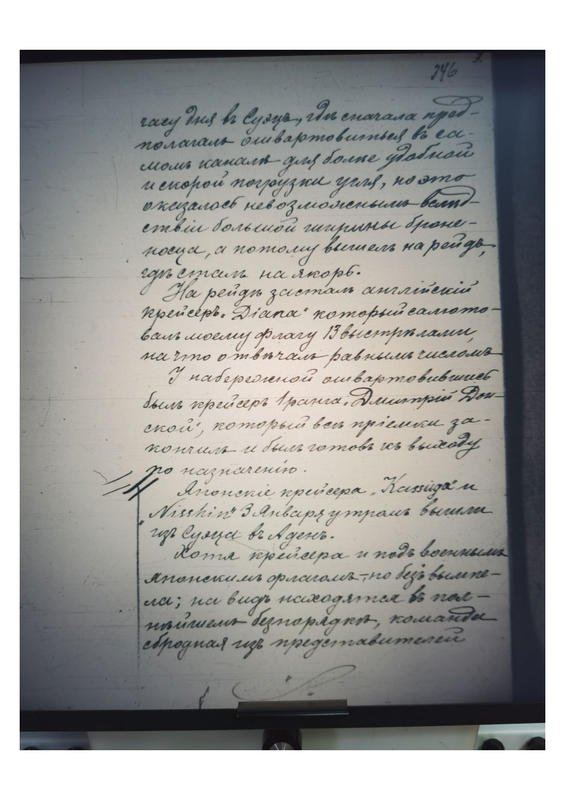 346
часу дня въ Суэцъ, гдѣ сначала пред-
полагалъ ошвартовиться въ са-
момъ каналѣ для болѣе удобной
и скорой погрузки угля, но это
оказалось невозможнымъ вслѣд-
ствіи большой ширины броне-
носца, а потому вышелъ на рейдъ,
гдѣ сталъ на якорь.
На рейдѣ засталъ англійскій
крейсеръ „Diana" который салюто-
валъ моему флагу 13 выстрѣлами,
на что отвѣчалъ равнымъ числомъ
У набережной ошвартовившись
былъ крейсеръ 1 ранга „Дмитрій Дон-
ской", который всѣ пріемки за-
кончилъ и былъ готовъ къ выходу
по назначенію.
Японскіе крейсера „Kassuga" и
„Nisshin" 3 Января утромъ вышли
изъ Суэца въ Аденъ.
Хотя крейсера и подъ военнымъ
японскимъ флагомъ – но безъ вымпе-
ла; на видъ находятся въ пол-
нѣйшемъ безпорядкѣ, команда
сбродная изъ представителей